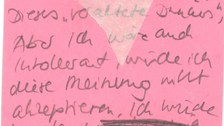 Dieses „veraltete Denken",
Aber Ich wäre auch
Intollerant würde ich
diese Meinung nicht
akzeptieren. Ich würde